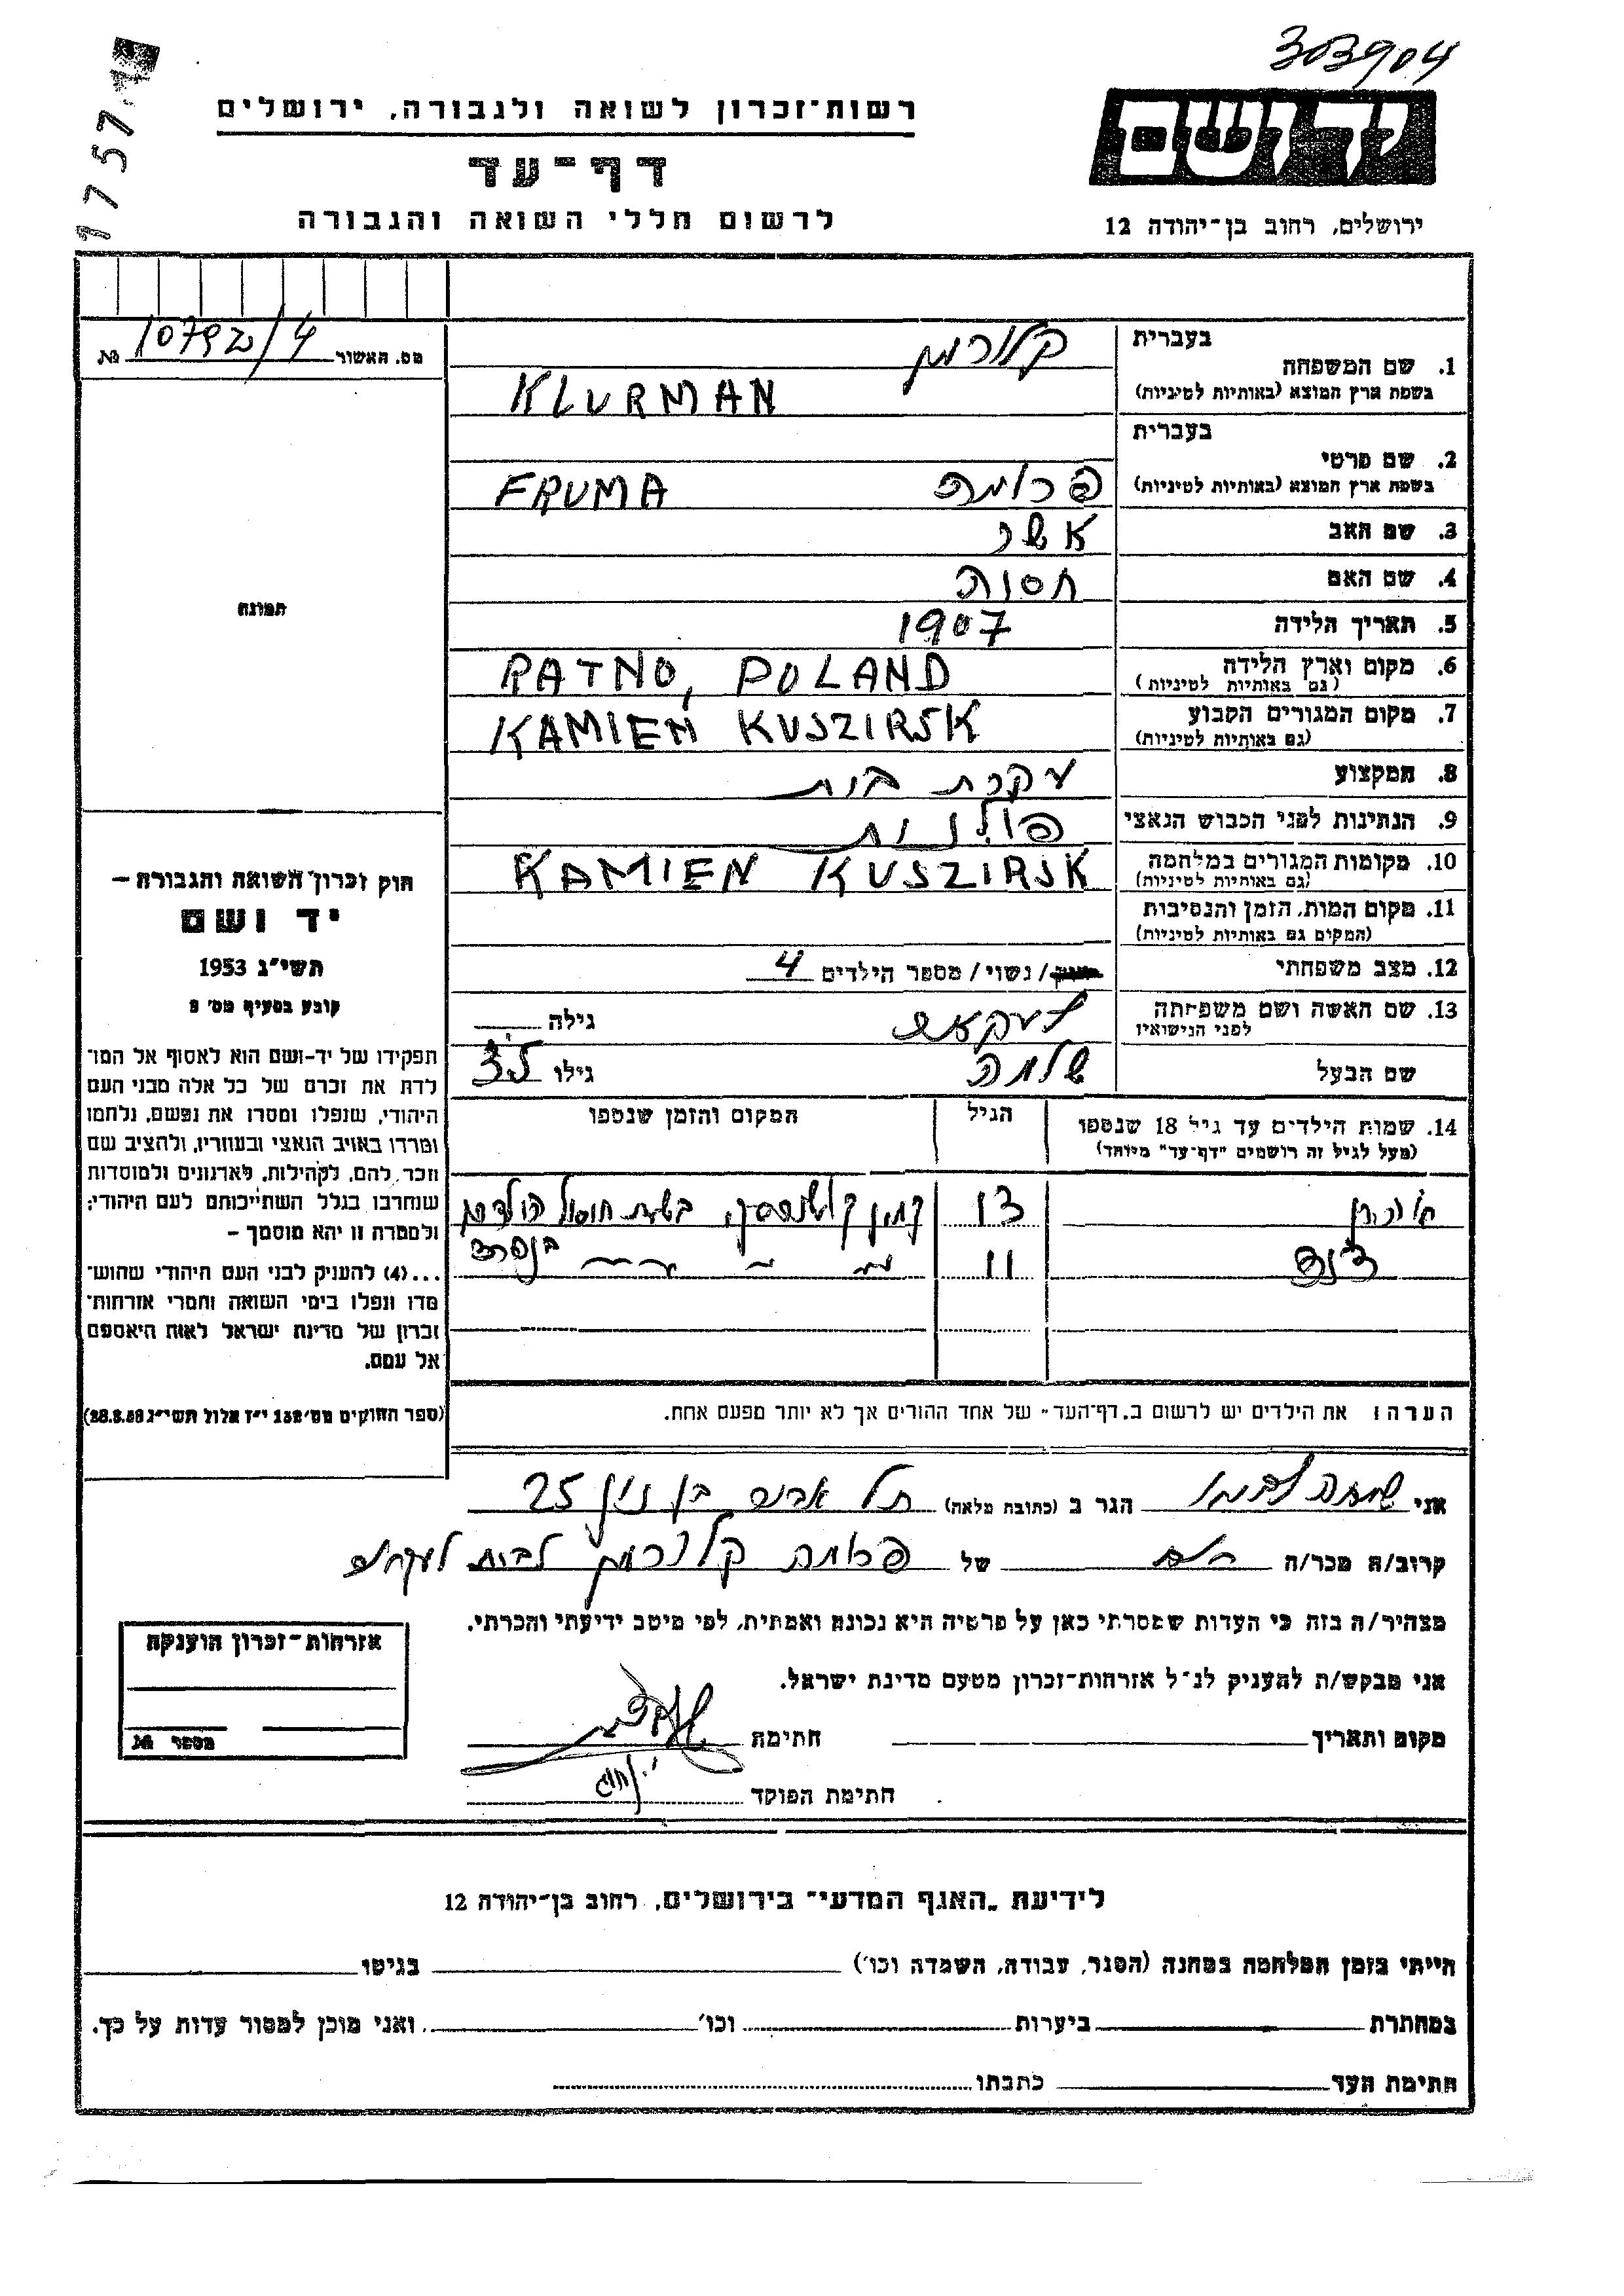 303904
1757
יד ושם
רשות־זכרון לשואה ולגבורה, ירושלים
דף־עד
לרשום חללי השואה והגבורה
ירושלים, רחוב בן־יהודה 12
מס. האשור 10792/4 №
בעברית
1. שם המשפחה קלורמן
בשפת ארץ המוצא (באותיות לטיניות) KLURMAN
בעברית
2. שם פרטי
בשפת ארץ המוצא (באותיות לטיניות) פרומה FRUMA
3. שם האב אשר
4. שם האם חסיה
5. תאריך הלידה 1907
6. מקום וארץ הלידה RATNO, POLAND
(גם באותיות לטיניות)
7. מקום המגורים הקבוע KAMIEŃ KUSZIRSK
(גם באותיות לטיניות)
8. המקצוע עקרת בית
9. הנתינות לפני הכבוש הנאצי פולנית
10. מקומות המגורים במלחמה KAMIEN KUSZIRSK
(גם באותיות לטיניות)
11. מקום המות, הזמן והנסיבות
(המקום גם באותיות לטיניות)
12. מצב משפחתי / נשוי / מספר הילדים 4
13. שם האשה ושם משפחתה
לפני הנישואיו גילה
שם הבעל שלמה גילו
14. שמות הילדים עד גיל 18 שנספו הגיל המקום והזמן שנספו
(מעל לגיל זה רושמים "דף־עד" מיוחד)
אהרון 13 קמין קושירסקי, בשעת חוסול הילדים
דוד 11 בנפרד
הערה: את הילדים יש לרשום ב„דף־העד" של אחד ההורים אך לא יותר מפעם אחת.
תמונה
חוק זכרון השואה והגבורה –
יד ושם
תשי"ג 1953
קובע בסעיף מס' 2
תפקידו של יד-ושם הוא לאסוף אל המו־
לדת את זכרם של כל אלה מבני העם
היהודי, שנפלו ומסרו את נפשם, נלחמו
ומרדו באויב הנאצי ובעוזריו, ולהציב שם
וזכר להם, לקהילות, לארגונים ולמוסדות
שנחרבו בגלל השתייכותם לעם היהודי;
ולמטרה זו יהא מוסמך –
...(4) להעניק לבני העם היהודי שהוש־
מדו ונפלו בימי השואה והמרי אזרחות־
זכרון של מדינת ישראל לאות היאספם
אל עמם.
(ספר החוקים מס' 132 י"ז אלול תשי"ג 28.8.53)
אני שמחה הגר ב (כתובת מלאה) תל אביב 25
קרוב/ה מכר/ה של פרומה קלורמן לבית
מצהיר/ה בזה כי העדות שמסרתי כאן על פרטיה היא נכונה ואמתית, לפי מיטב ידיעתי והכרתי.
אני מבקש/ת להעניק לנ"ל אזרחות־זכרון מטעם מדינת ישראל.
מקום ותאריך חתימה
חתימת הפוקד
אזרחות־זכרון הוענקה
מספר №
לידיעת „האגף המדעי" בירושלים, רחוב בן־יהודה 12
הייתי בזמן המלחמה במחנה (הסגר, עבודה, השמדה וכו') בגיטו
במחתרת ביערות וכו' ואני מוכן למסור עדות על כך.
חתימת העד כתבתו